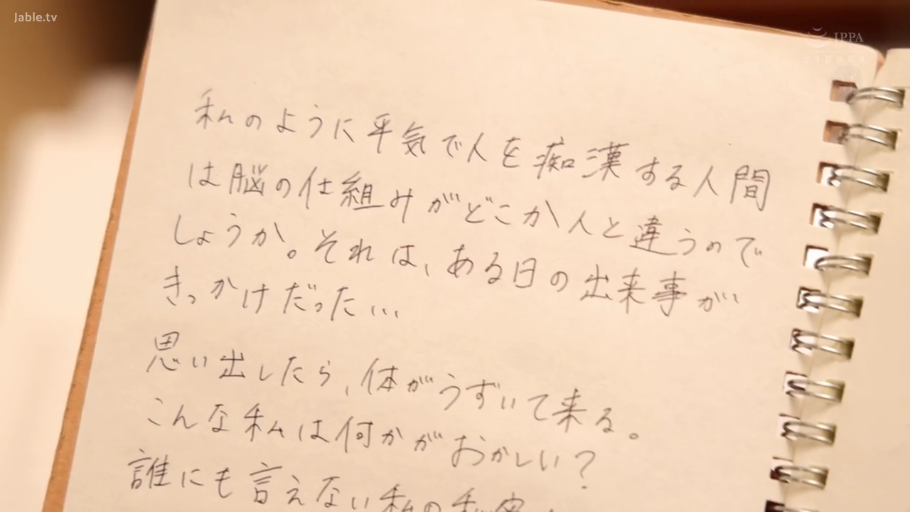 Jable.tv
IPPA
私のように平気で人を痴漢する人間
は脳の仕組みがどこか人と違うので
しょうか。それは、ある日の出来事が
きっかけだった…
思い出したら、体がうずいて来る。
こんな私は何かがおかしい?
誰にも言えない私の秘密